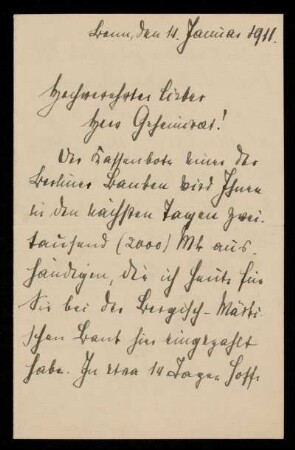 Bonn, den 14. Januar 1911.
Hochverehrter lieber
Herr Geheimrat!
Der Kassenbote einer der
Berliner Banken wird Ihnen
in den nächsten Tagen zwei-
tausend (2000) Mk aus-
händigen, die ich heute für
Sie bei der Bergisch-Märki-
schen Bank hier eingezahlt
habe. In etwa 14 Tagen hoffe